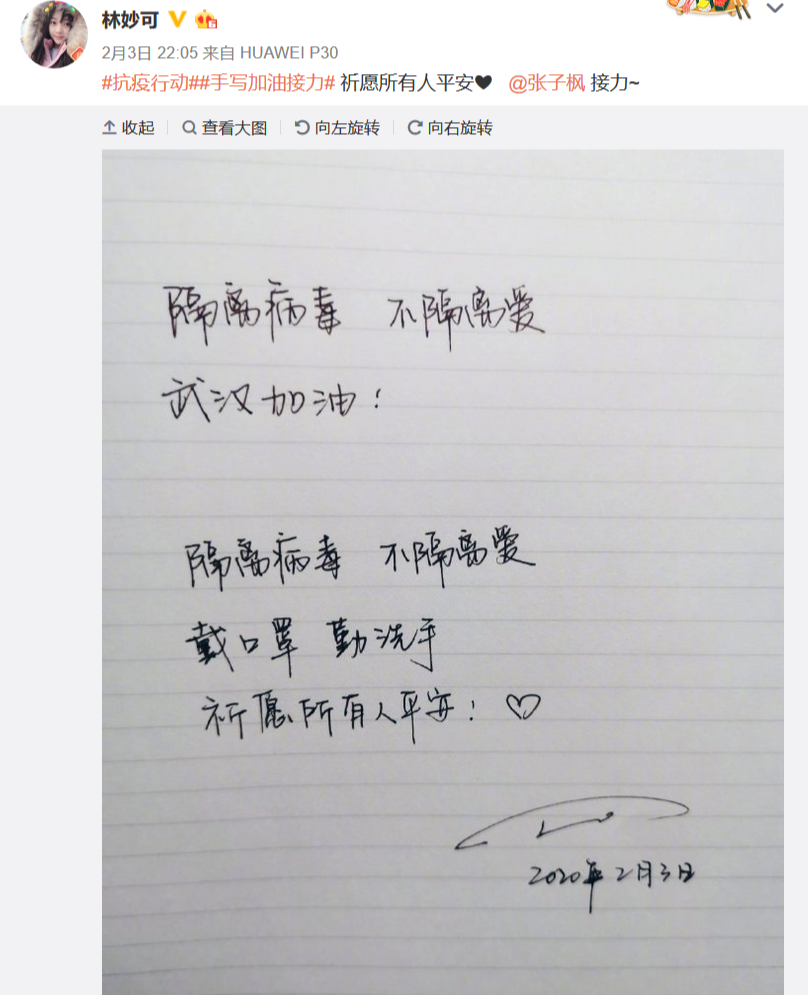 林妙可
2月3日 22:05 来自 HUAWEI P30
#抗疫行动##手写加油接力# 祈愿所有人平安♥ @张子枫 接力~
收起 查看大图 向左旋转 向右旋转
隔离病毒 不隔离爱
武汉加油!
隔离病毒 不隔离爱
戴口罩 勤洗手
祈愿所有人平安! ♡
2020年2月3日